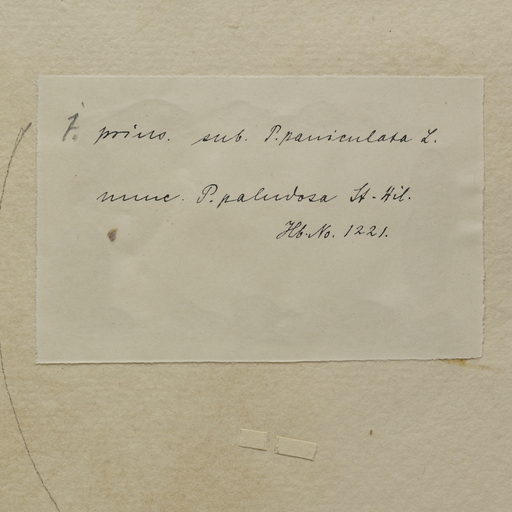 1. primo. sub. P. paniculata L.
nunc. P. paludosa St-Hil.
Hb. No. 1221.